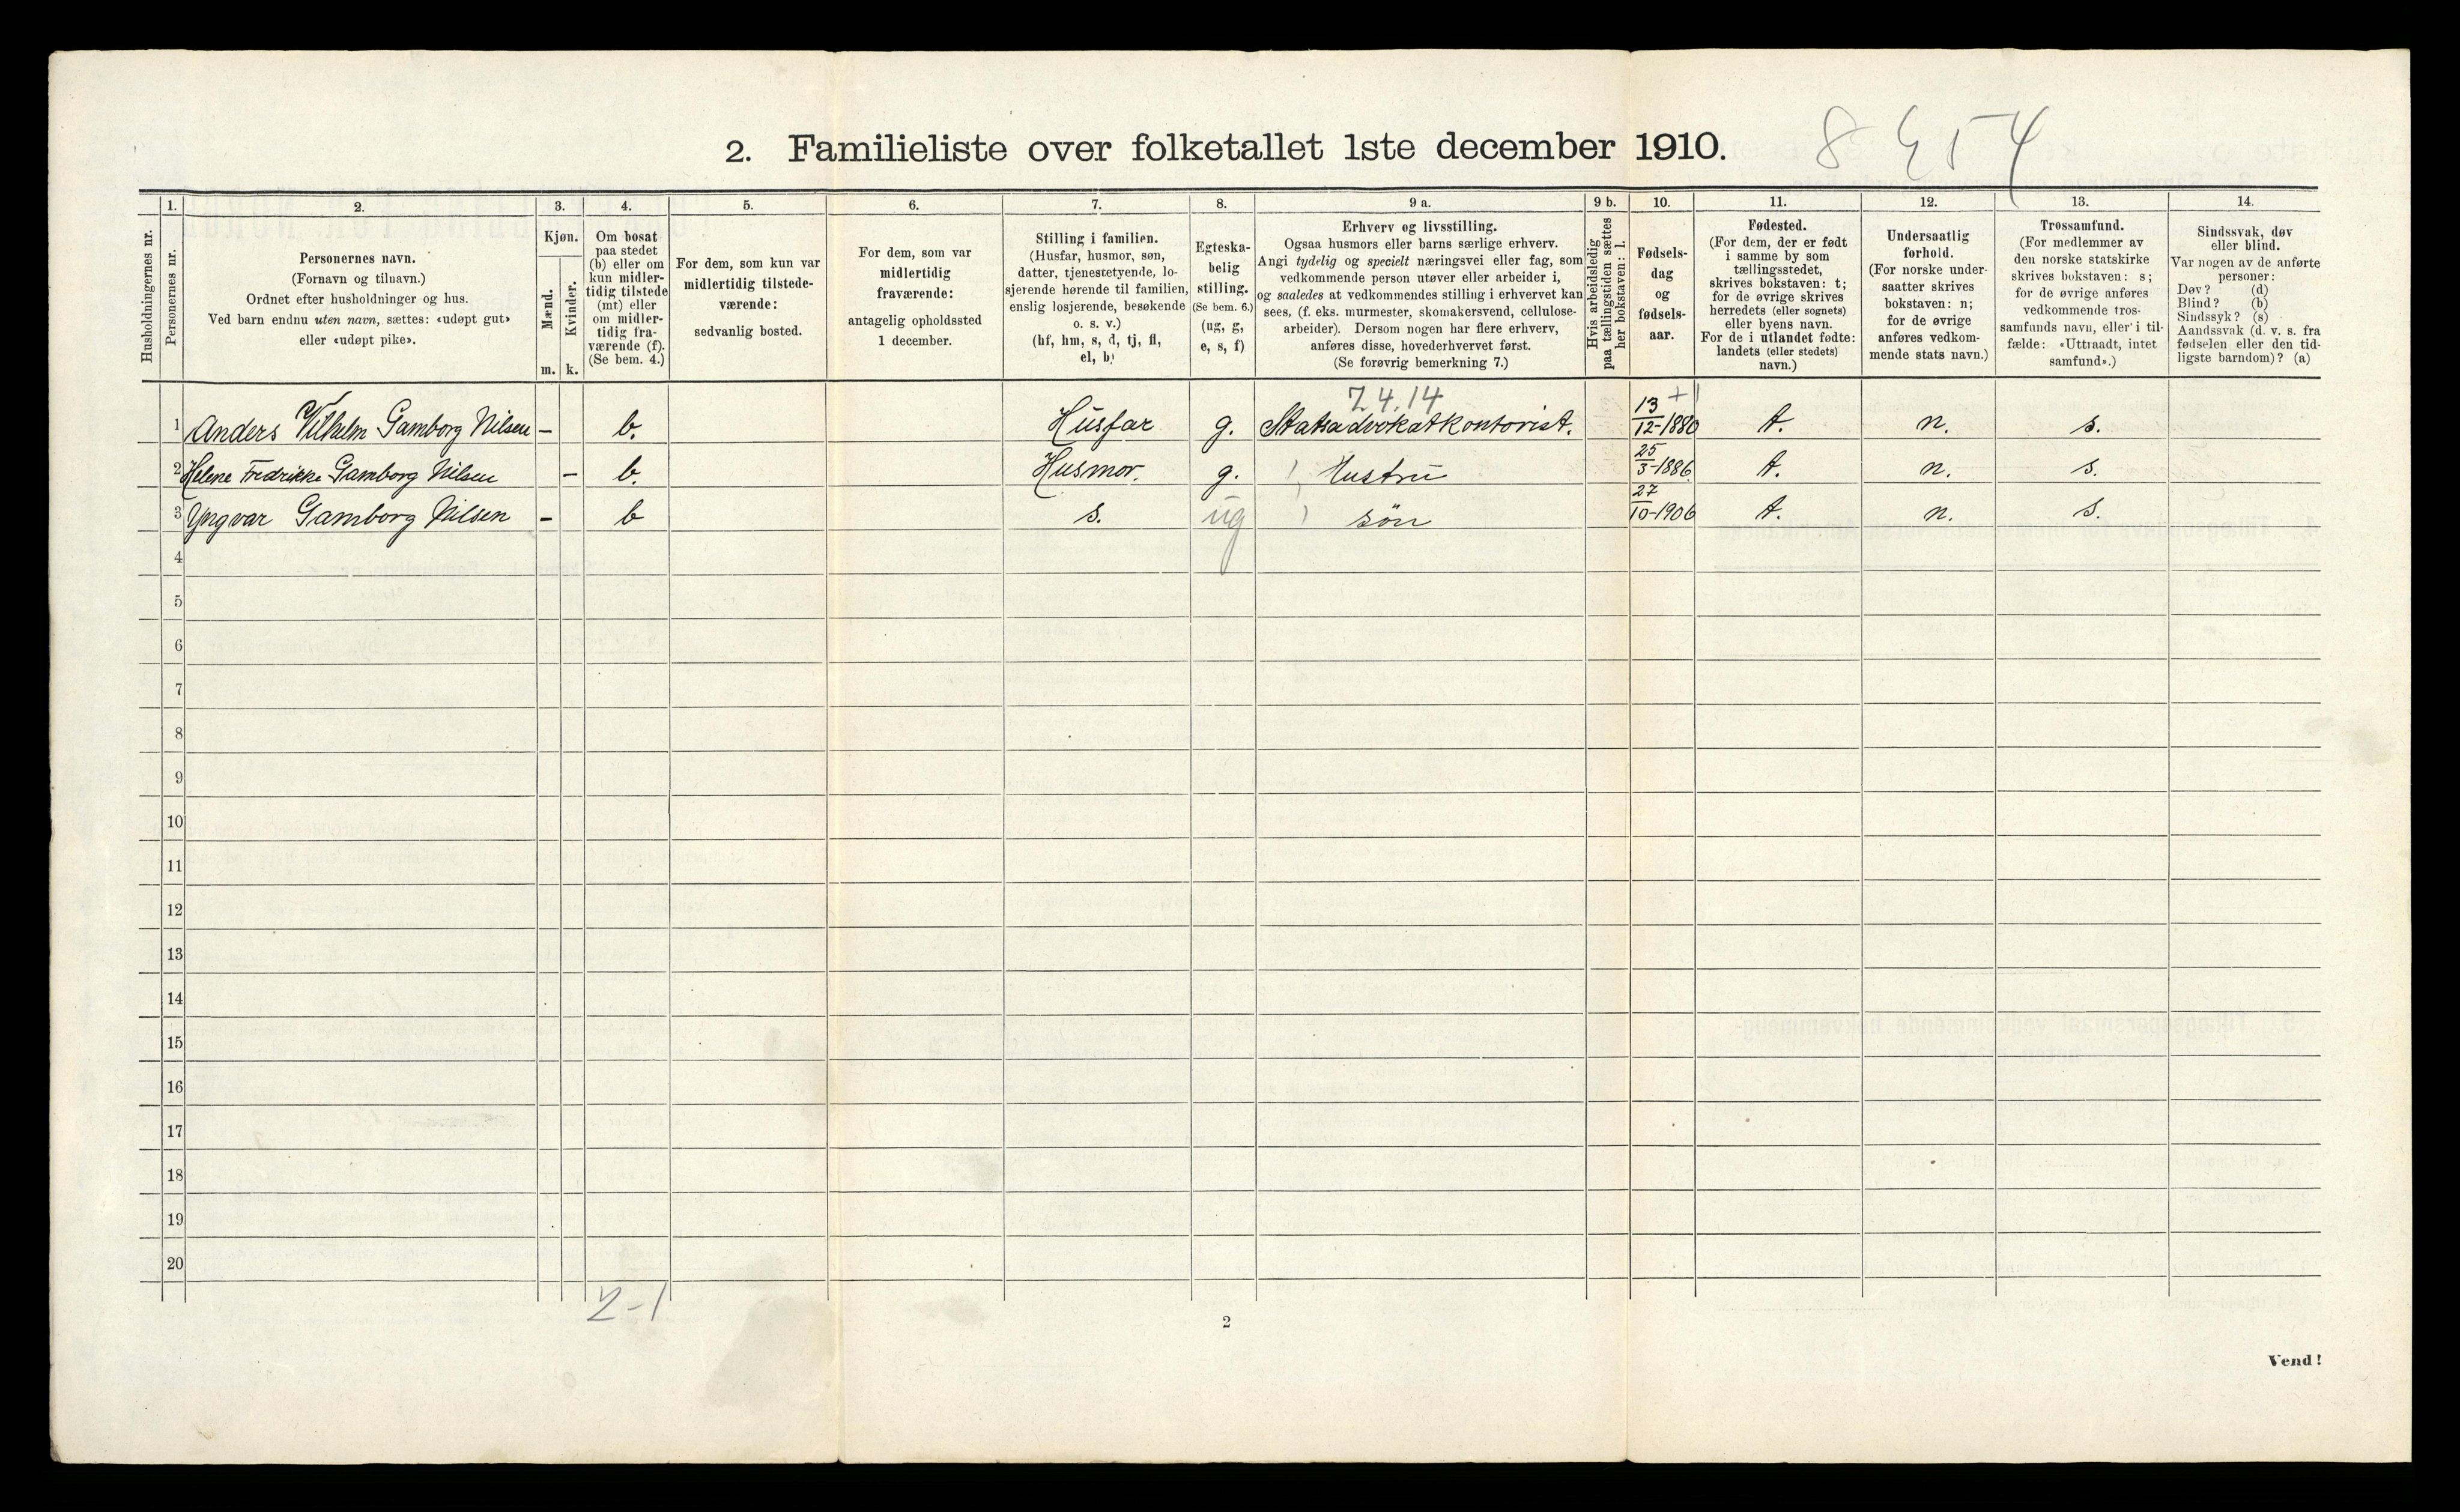 2. Familieliste over folketallet 1ste december 1910.
Husholdningernes nr.
1.
Personernes nr.
2.
Personernes navn.
(Fornavn og tilnavn.)
Ordnet efter husholdninger og hus.
Ved barn endnu uten navn, sættes: «udøpt gut»
eller «udøpt pike».
3.
Kjøn.
Mænd.
Kvinder.
m. k.
4.
Om bosat
paa stedet
(b) eller om
kun midler-
tidig tilstede
(mt) eller
om midler-
tidig fra-
værende (f).
(Se bem. 4.)
5.
For dem, som kun var
midlertidig tilstede-
værende:
sedvanlig bosted.
6.
For dem, som var
midlertidig
fraværende:
antagelig opholdssted
1 december.
7.
Stilling i familien.
(Husfar, husmor, søn,
datter, tjenestetyende, lo-
sjerende hørende til familien,
enslig losjerende, besøkende
o. s. v.)
(hf, hm, s, d, tj, fl,
el, b)
8.
Egteska-
belig
stilling.
(Se bem. 6.)
(ug, g,
e, s, f)
9 a.
Erhverv og livsstilling.
Ogsaa husmors eller barns særlige erhverv.
Angi tydelig og specielt næringsvei eller fag, som
vedkommende person utøver eller arbeider i,
og saaledes at vedkommendes stilling i erhvervet kan
sees, (f. eks. murmester, skomakersvend, cellulose-
arbeider). Dersom nogen har flere erhverv,
anføres disse, hovederhvervet først.
(Se forøvrig bemerkning 7.)
9 b.
Hvis arbeidsledig
paa tællingstiden sættes
her bokstaven: l.
10.
Fødsels-
dag
og
fødsels-
aar.
11.
Fødested.
(For dem, der er født
i samme by som
tællingsstedet,
skrives bokstaven: t;
for de øvrige skrives
herredets (eller sognets)
eller byens navn.
For de i utlandet fødte:
landets (eller stedets)
navn.)
12.
Undersaatlig
forhold.
(For norske under-
saatter skrives
bokstaven: n;
for de øvrige
anføres vedkom-
mende stats navn.)
13.
Trossamfund.
(For medlemmer av
den norske statskirke
skrives bokstaven: s;
for de øvrige anføres
vedkommende tros-
samfunds navn, eller i til-
fælde: «Uttraadt, intet
samfund».)
14.
Sindssvak, døv
eller blind.
Var nogen av de anførte
personer:
Døv? (d)
Blind? (b)
Sindssyk? (s)
Aandssvak (d. v. s. fra
fødselen eller den tid-
ligste barndom)? (a)
7.4.14
1 Anders Vilhelm Gamborg Nilsen – b. Husfar g. Statsadvokatkontorist. 13/12-1880 t. n. s.
2 Helene Fredrikke Gamborg Nilsen – b. Husmor. g. Hustru 25/3-1886 t. n. s.
3 Yngvar Gamborg Nilsen – b s. ug søn 27/10-1906 t. n. s.
4
5
6
7
8
9
10
11
12
13
14
15
16
17
18
19
20
2-1
2
Vend!